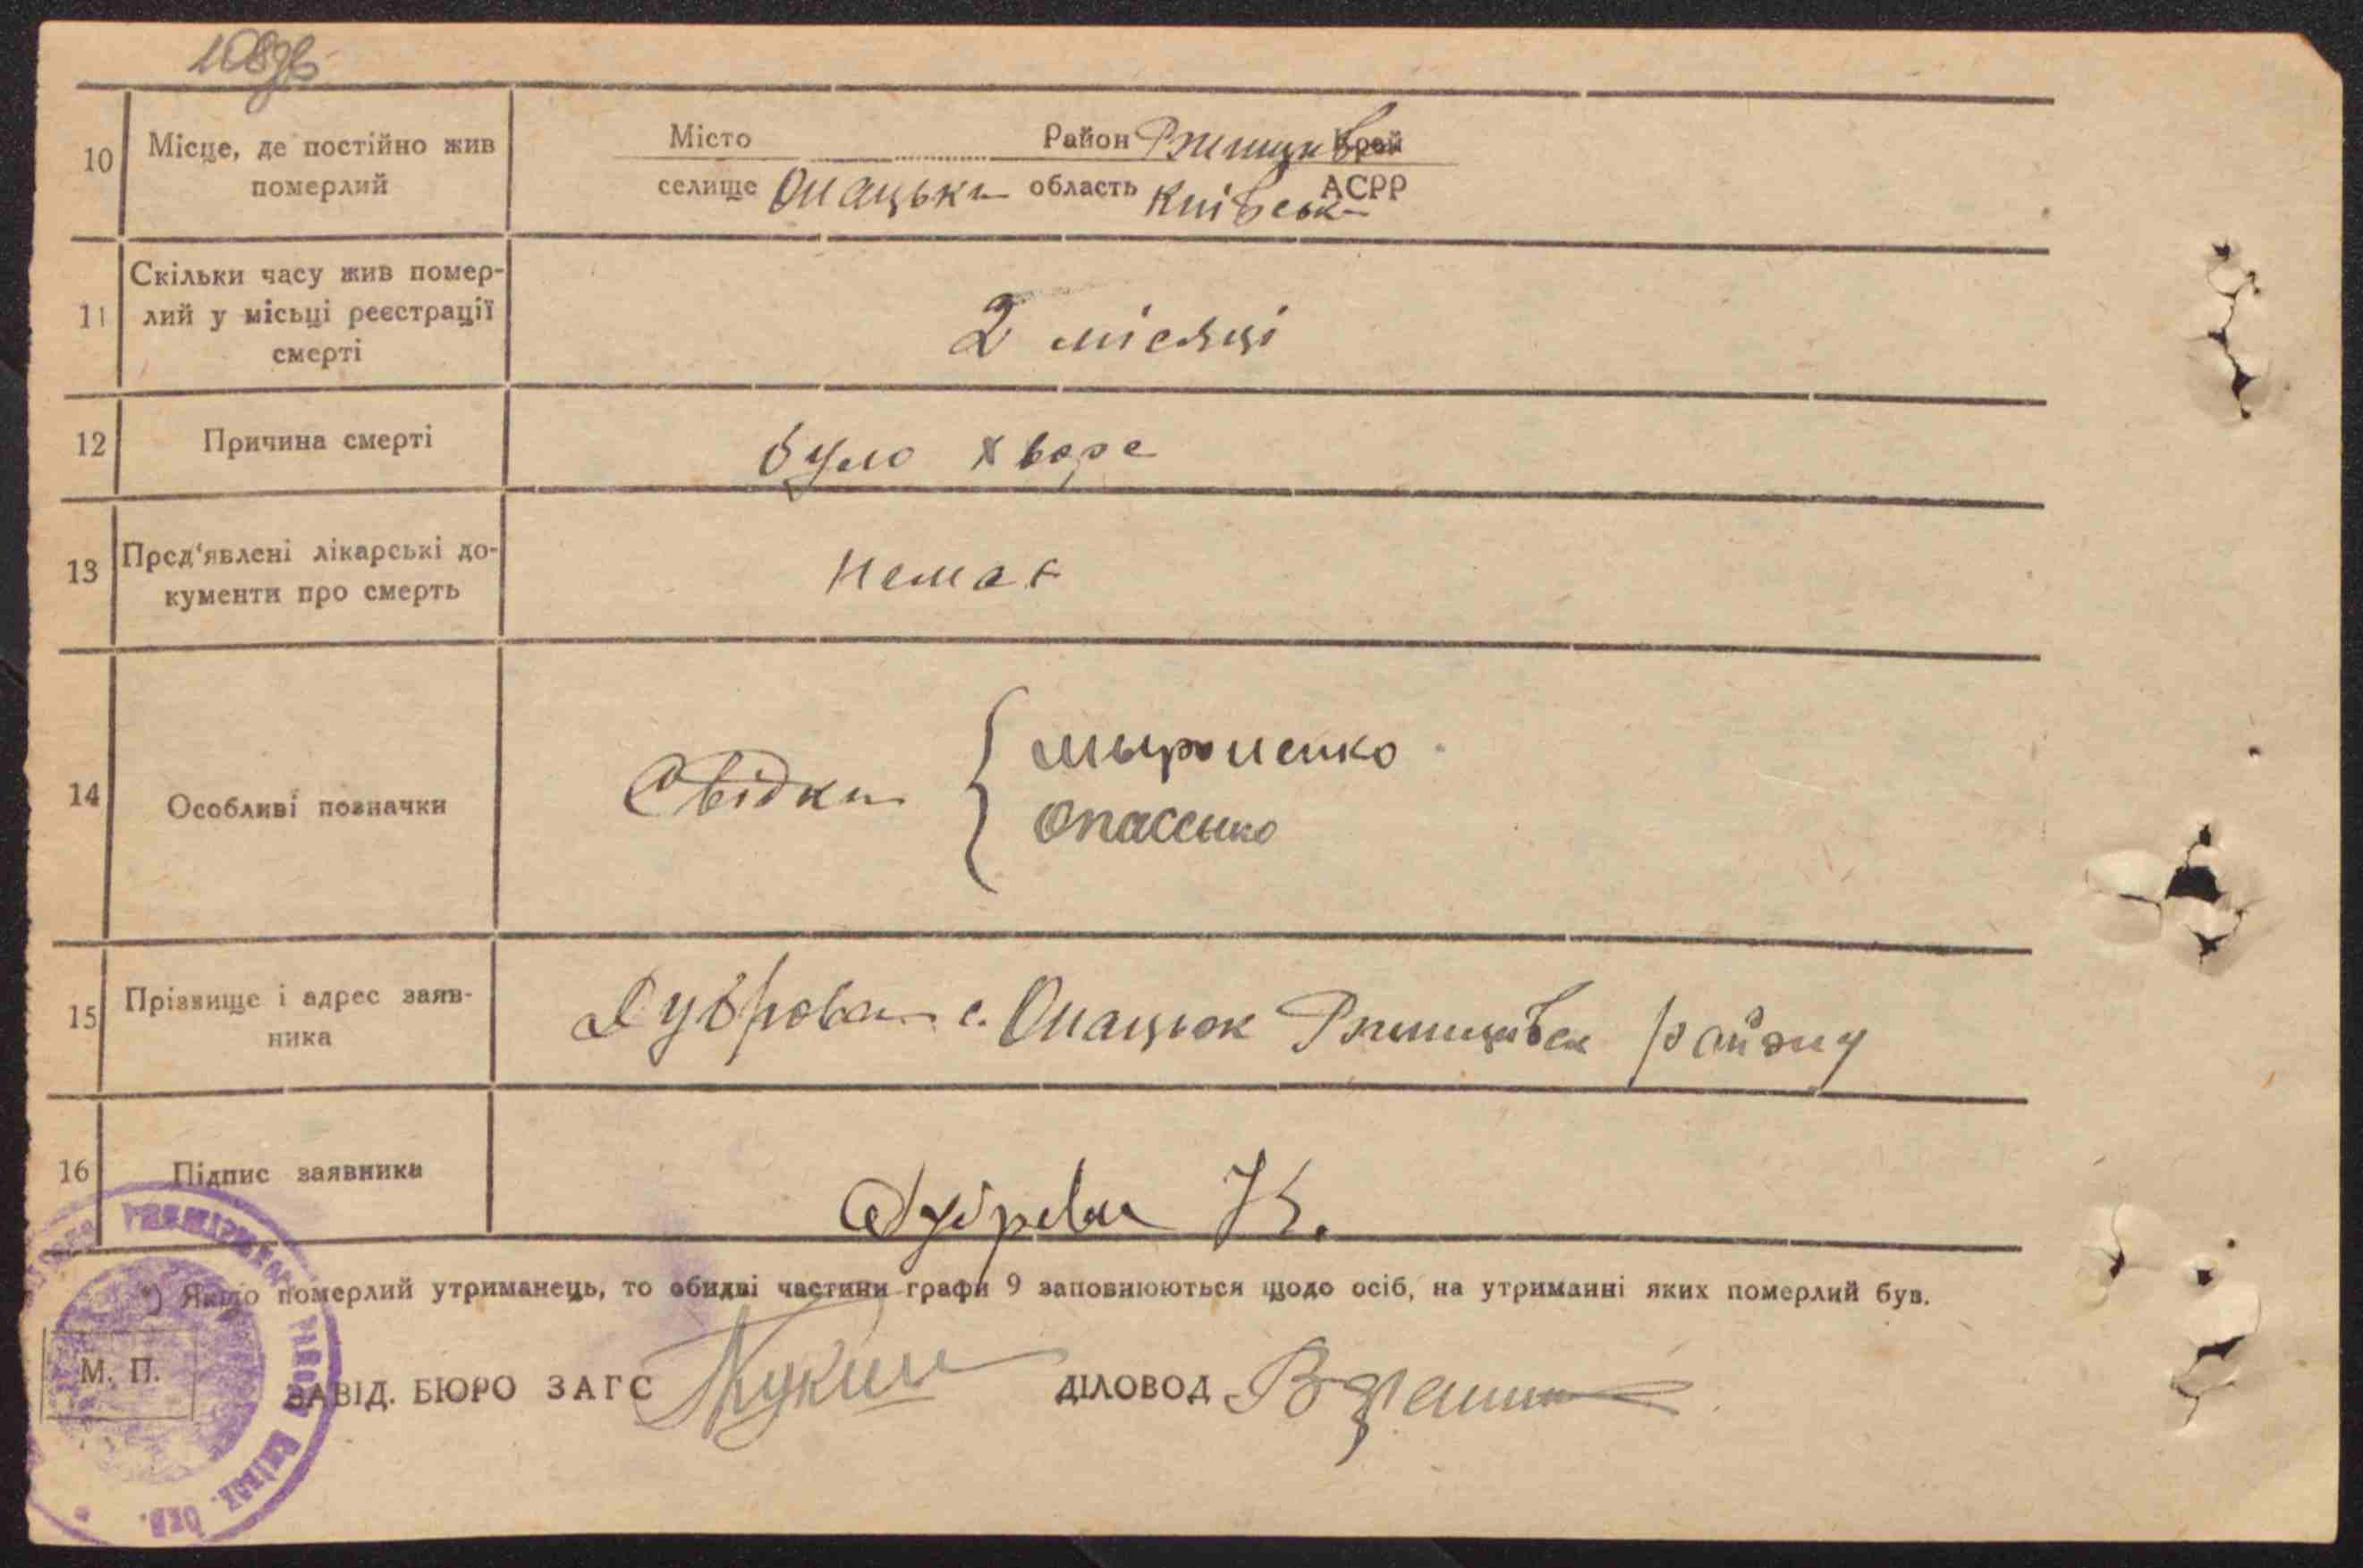 10
Місце, де постійно жив
померлий
Місто Район Край
селище Онацьки область Київськ АСРР
11
Скільки часу жив помер-
лий у місьці реєстрації
смерті
2 місяці
12
Причина смерті
було хворе
13
Пред'явлені лікарські до-
кументи про смерть
немає
14
Особливі позначки
Свідки
мыроненко
опасенко
15
Прізвище і адрес заяв-
ника
с. Онацьок Ржищівськ району
16
Підпис заявника
К.
*) Якщо померлий утриманець, то обидві частини графи 9 заповнюються щодо осіб, на утриманні яких померлий був.
М. П.
ЗАВІД. БЮРО ЗАГС ДІЛОВОД